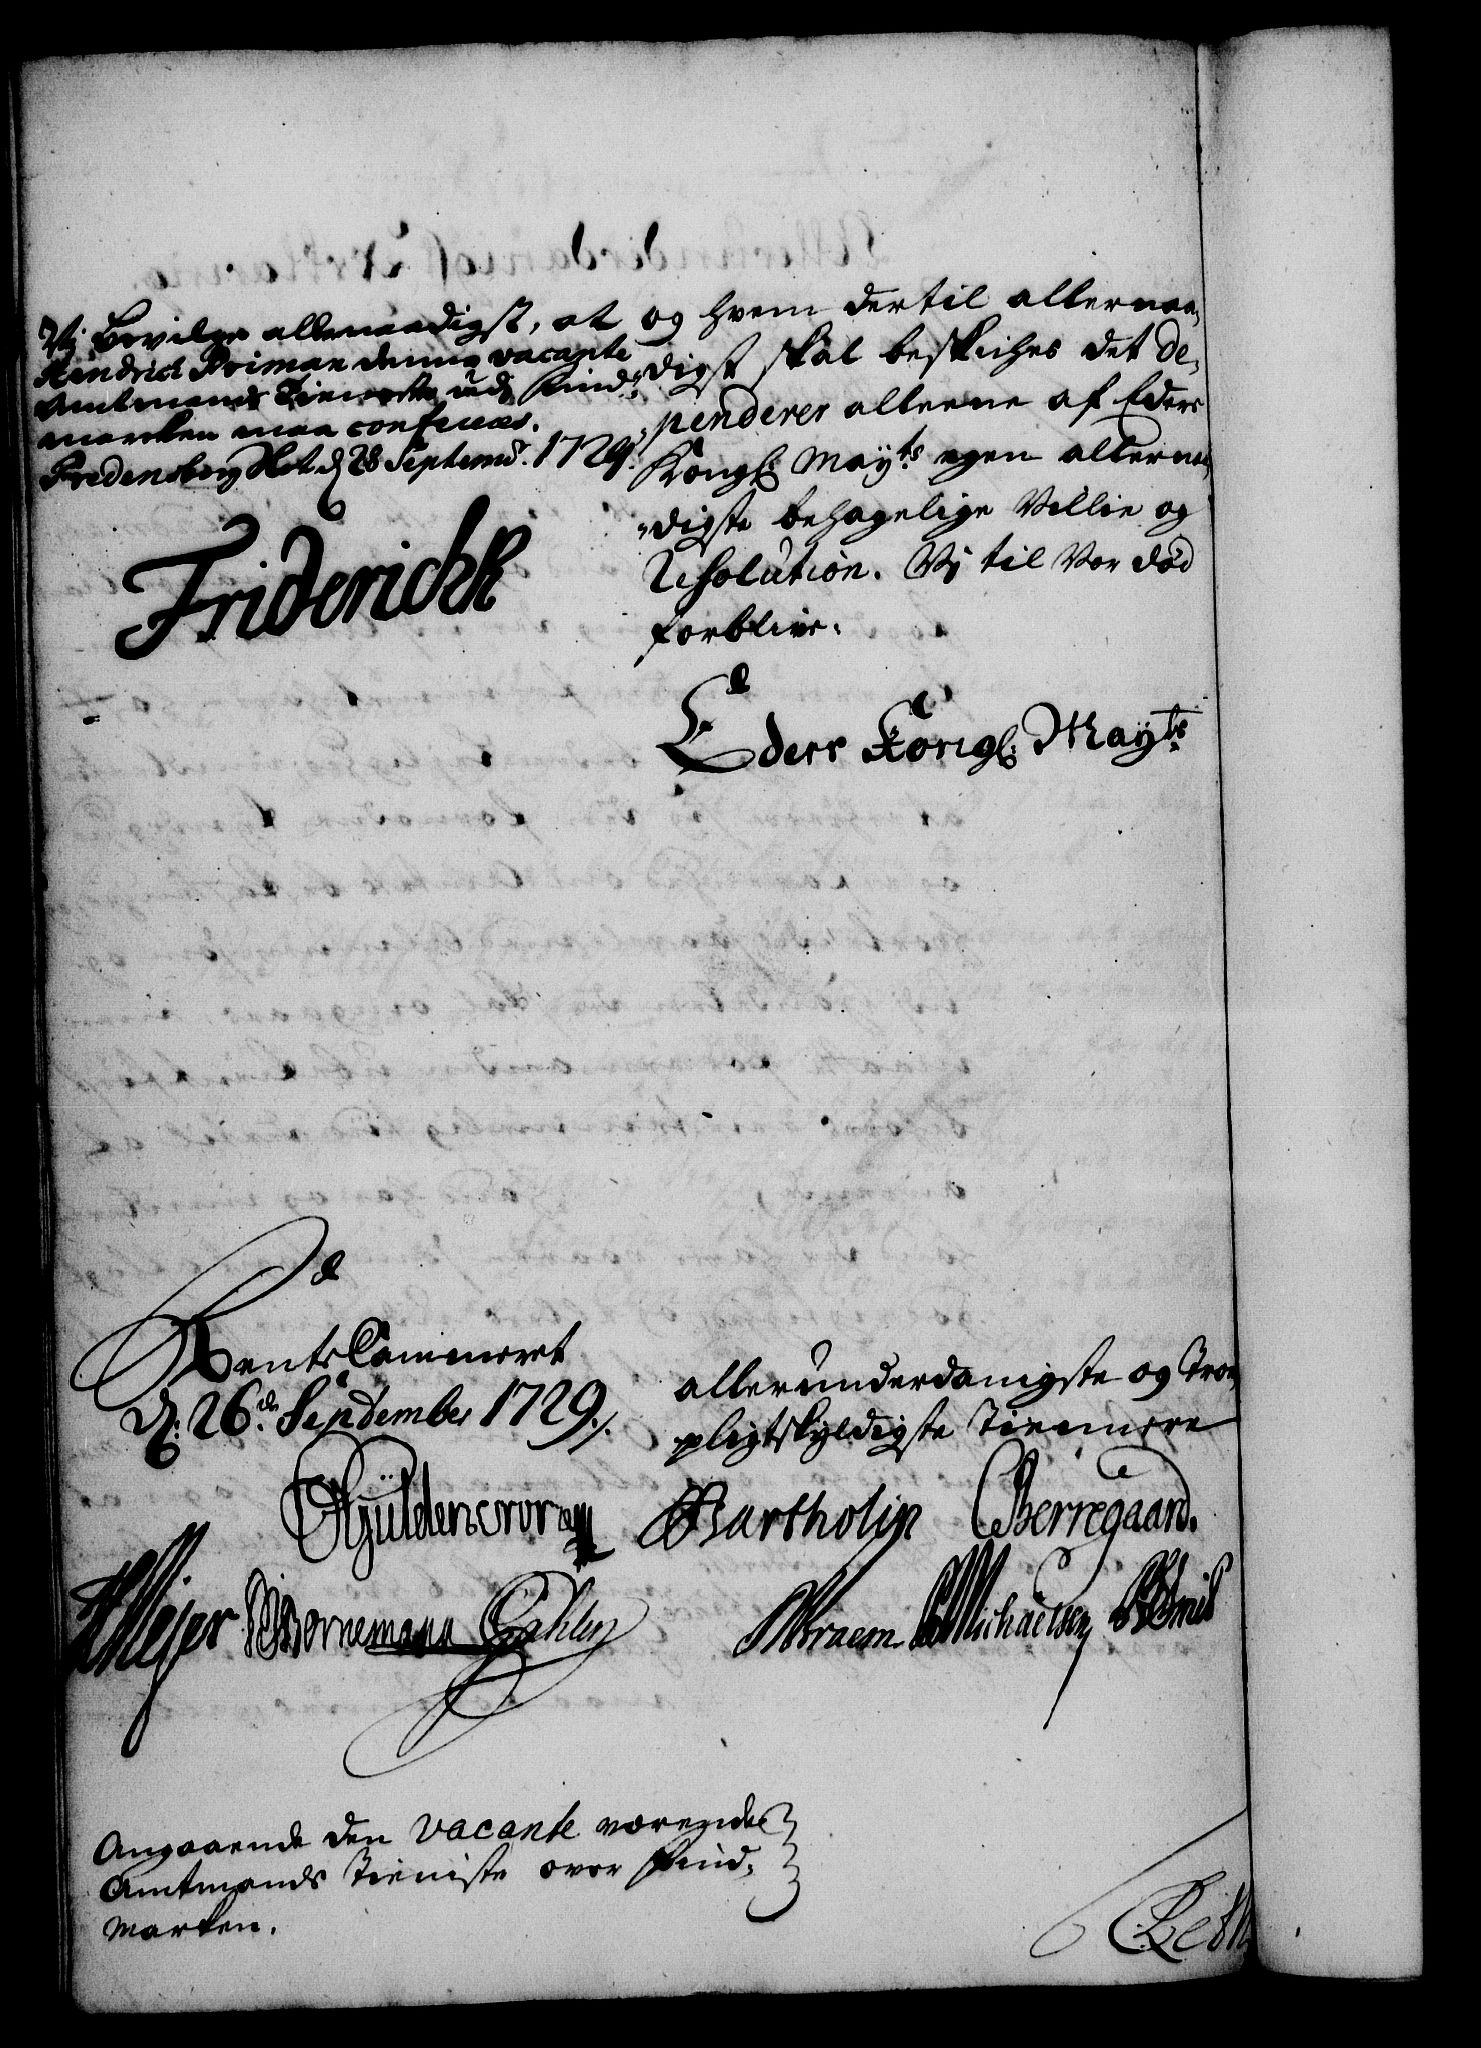 Vj Bevilge allernaadigst, at
Hendrich Priman denne vacante
Amtmands Tieneste udj Find¸
marcken maa conferes.
Fredensborg Slot dj 28 Septembr. 1729.
Friderich R
og hvem dertil allernaa¸
digst skal beskikhes det de¸
penderer alleene af Eders
Kongl: Mayts egen allernaa¸
digste behagelige Villie og
Resolution. Vj til Vor død
forblive.
Eders Kongl: Mayts
RenteCammeret
d: 26de September 1729./.
allerunderdanigste og Troe
pligtskyldigste Tiennere
Gÿldencrone
Bartholin
CBerregaard.
HMejer
Bornemann
Braem
Michaelsen
Angaaende den vacante værende
Amtmands Tieniste over Find¸
marken.